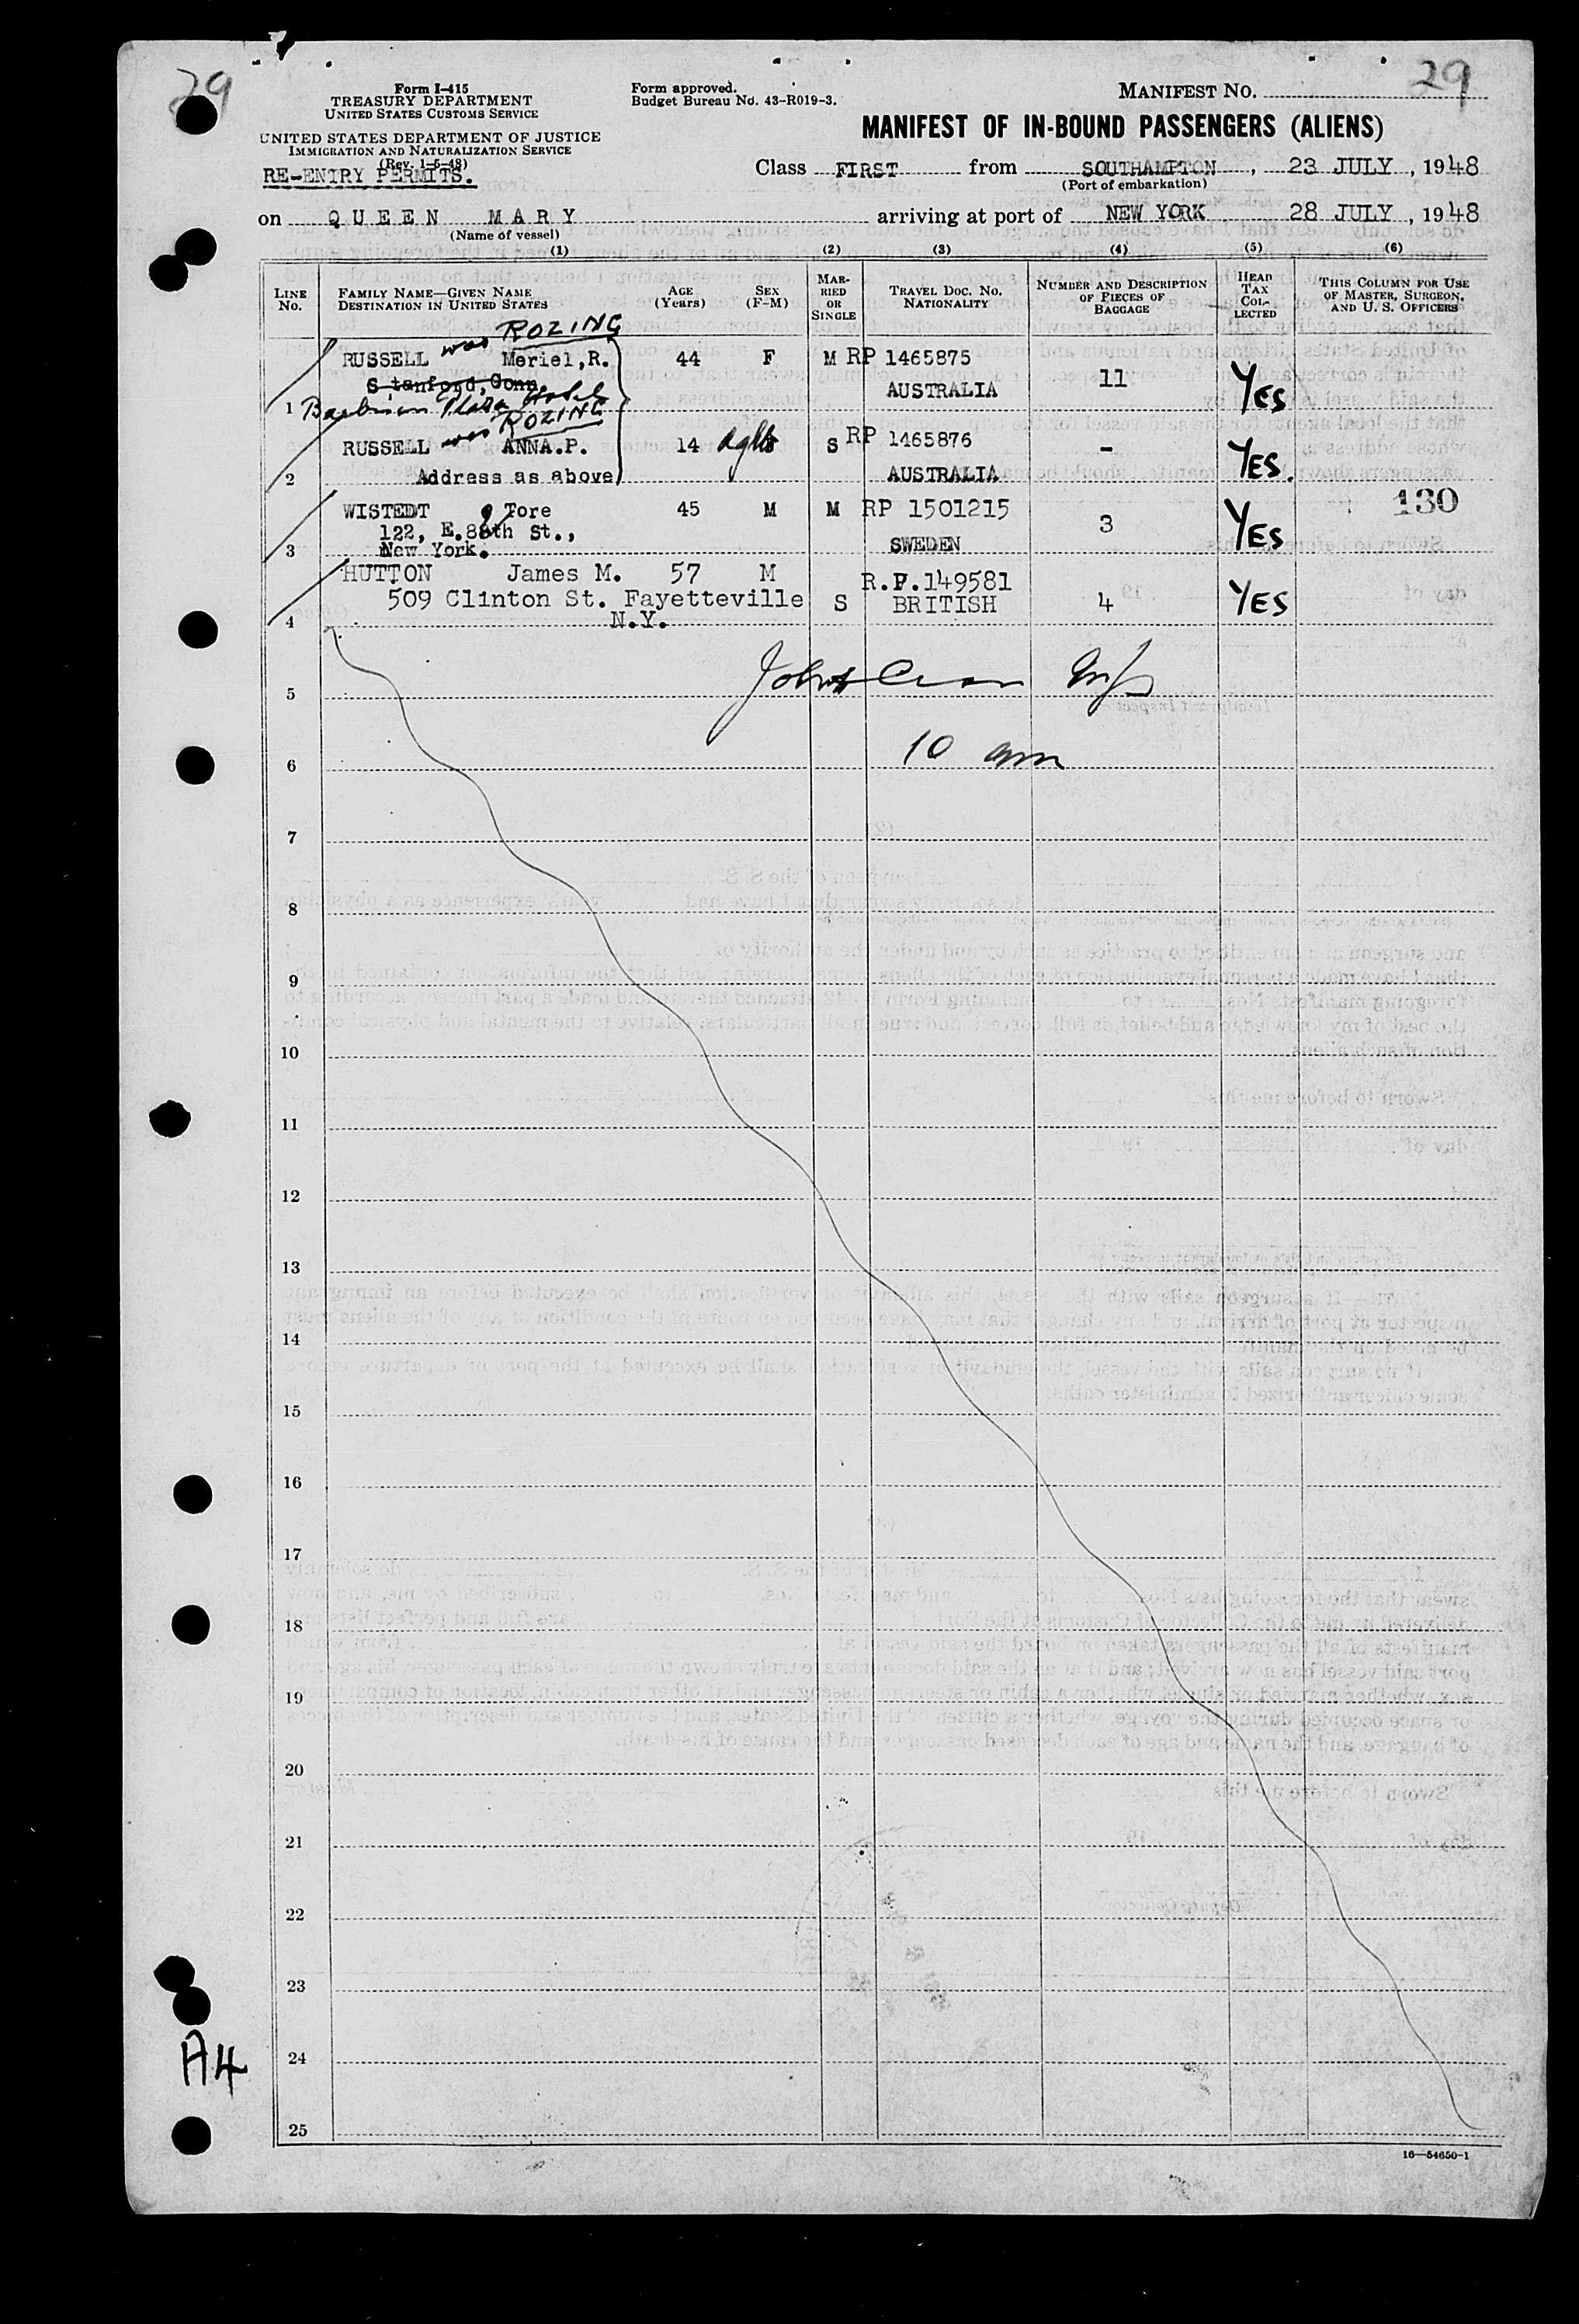 29
29
Form I-415
TREASURY DEPARTMENT
UNITED STATES CUSTOMS SERVICE
Form approved.
Budget Bureau No. 43-R019-3.
MANIFEST NO.
UNITED STATES DEPARTMENT OF JUSTICE
IMMIGRATION AND NATURALIZATION SERVICE
(Rev. 1-5-48)
RE-ENTRY PERMITS.
MANIFEST OF IN-BOUND PASSENGERS (ALIENS)
Class FIRST from SOUTHAMPTON, 23 JULY, 1948
(Port of embarkation)
on QUEEN MARY arriving at port of NEW YORK 28 JULY, 1948
(Name of vessel)
(1) (2) (3) (4) (5) (6)
LINE No.
FAMILY NAME—GIVEN NAME
DESTINATION IN UNITED STATES
AGE (Years)
SEX (F-M)
MARRIED OR SINGLE
TRAVEL DOC. NO.
NATIONALITY
NUMBER AND DESCRIPTION OF PIECES OF BAGGAGE
HEAD TAX COLLECTED
THIS COLUMN FOR USE OF MASTER, SURGEON, AND U. S. OFFICERS
was ROZING
RUSSELL Meriel, R. 44 F M RP 1465875
Stamford, Conn
AUSTRALIA 11 YES
1 Barbizon Plaza Hotel
was ROZING
RUSSELL ANNA.P. 14 S RP 1465876 - YES.
2 Address as above AUSTRALIA
WISTEDT Tore 45 M M RP 1501215 130
122, E. 88th St., 3 YES
3 New York. SWEDEN
HUTTON James M. 57 M R.P.149581
509 Clinton St. Fayetteville S BRITISH 4 YES
4 N.Y.
5
10 am
6
7
8
9
10
11
12
13
14
15
16
17
18
19
20
21
22
23
24
A4
25
16—54650-1